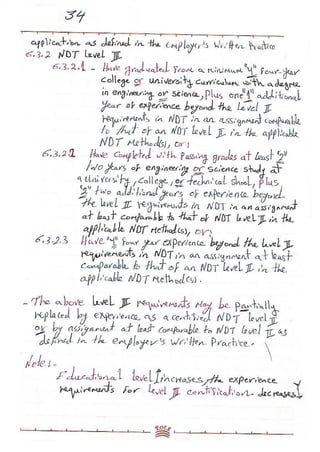 34
application as defined in the employer's written Practice
6.3.2 NDT Level III
6.3.2.1 - Have graduated from a minimum "4" Four-year
college or university curriculum with a degree
in engineering or science, Plus one "1" additional
year of experience beyond the Level II
requirements in NDT in an assignment comparable
to that of an NDT level II in the applicable
NDT Method(s), or;
6.3.2.2 Have Completed with Passing grades at least "2"
two years of engineering or science study at
a University, College, or technical school, Plus
"2" two additional years of experience beyond
the level II requirements in NDT in an assignment
at least comparable to that of NDT level II in the
applicable NDT Method(s), or;
6.3.2.3 Have "4" four year experience beyond the level II
requirements in NDT in an assignment at least
Comparable to that of an NDT level II in the
applicable NDT Method(s).
- The above level III requirements May be Partially
replaced by experience as a certified NDT level II
or by assignment at least Comparable to NDT level II as
defined in the employer's written Practice.
Note:-
Educational level increases, the experience
requirements For level III certification decreases